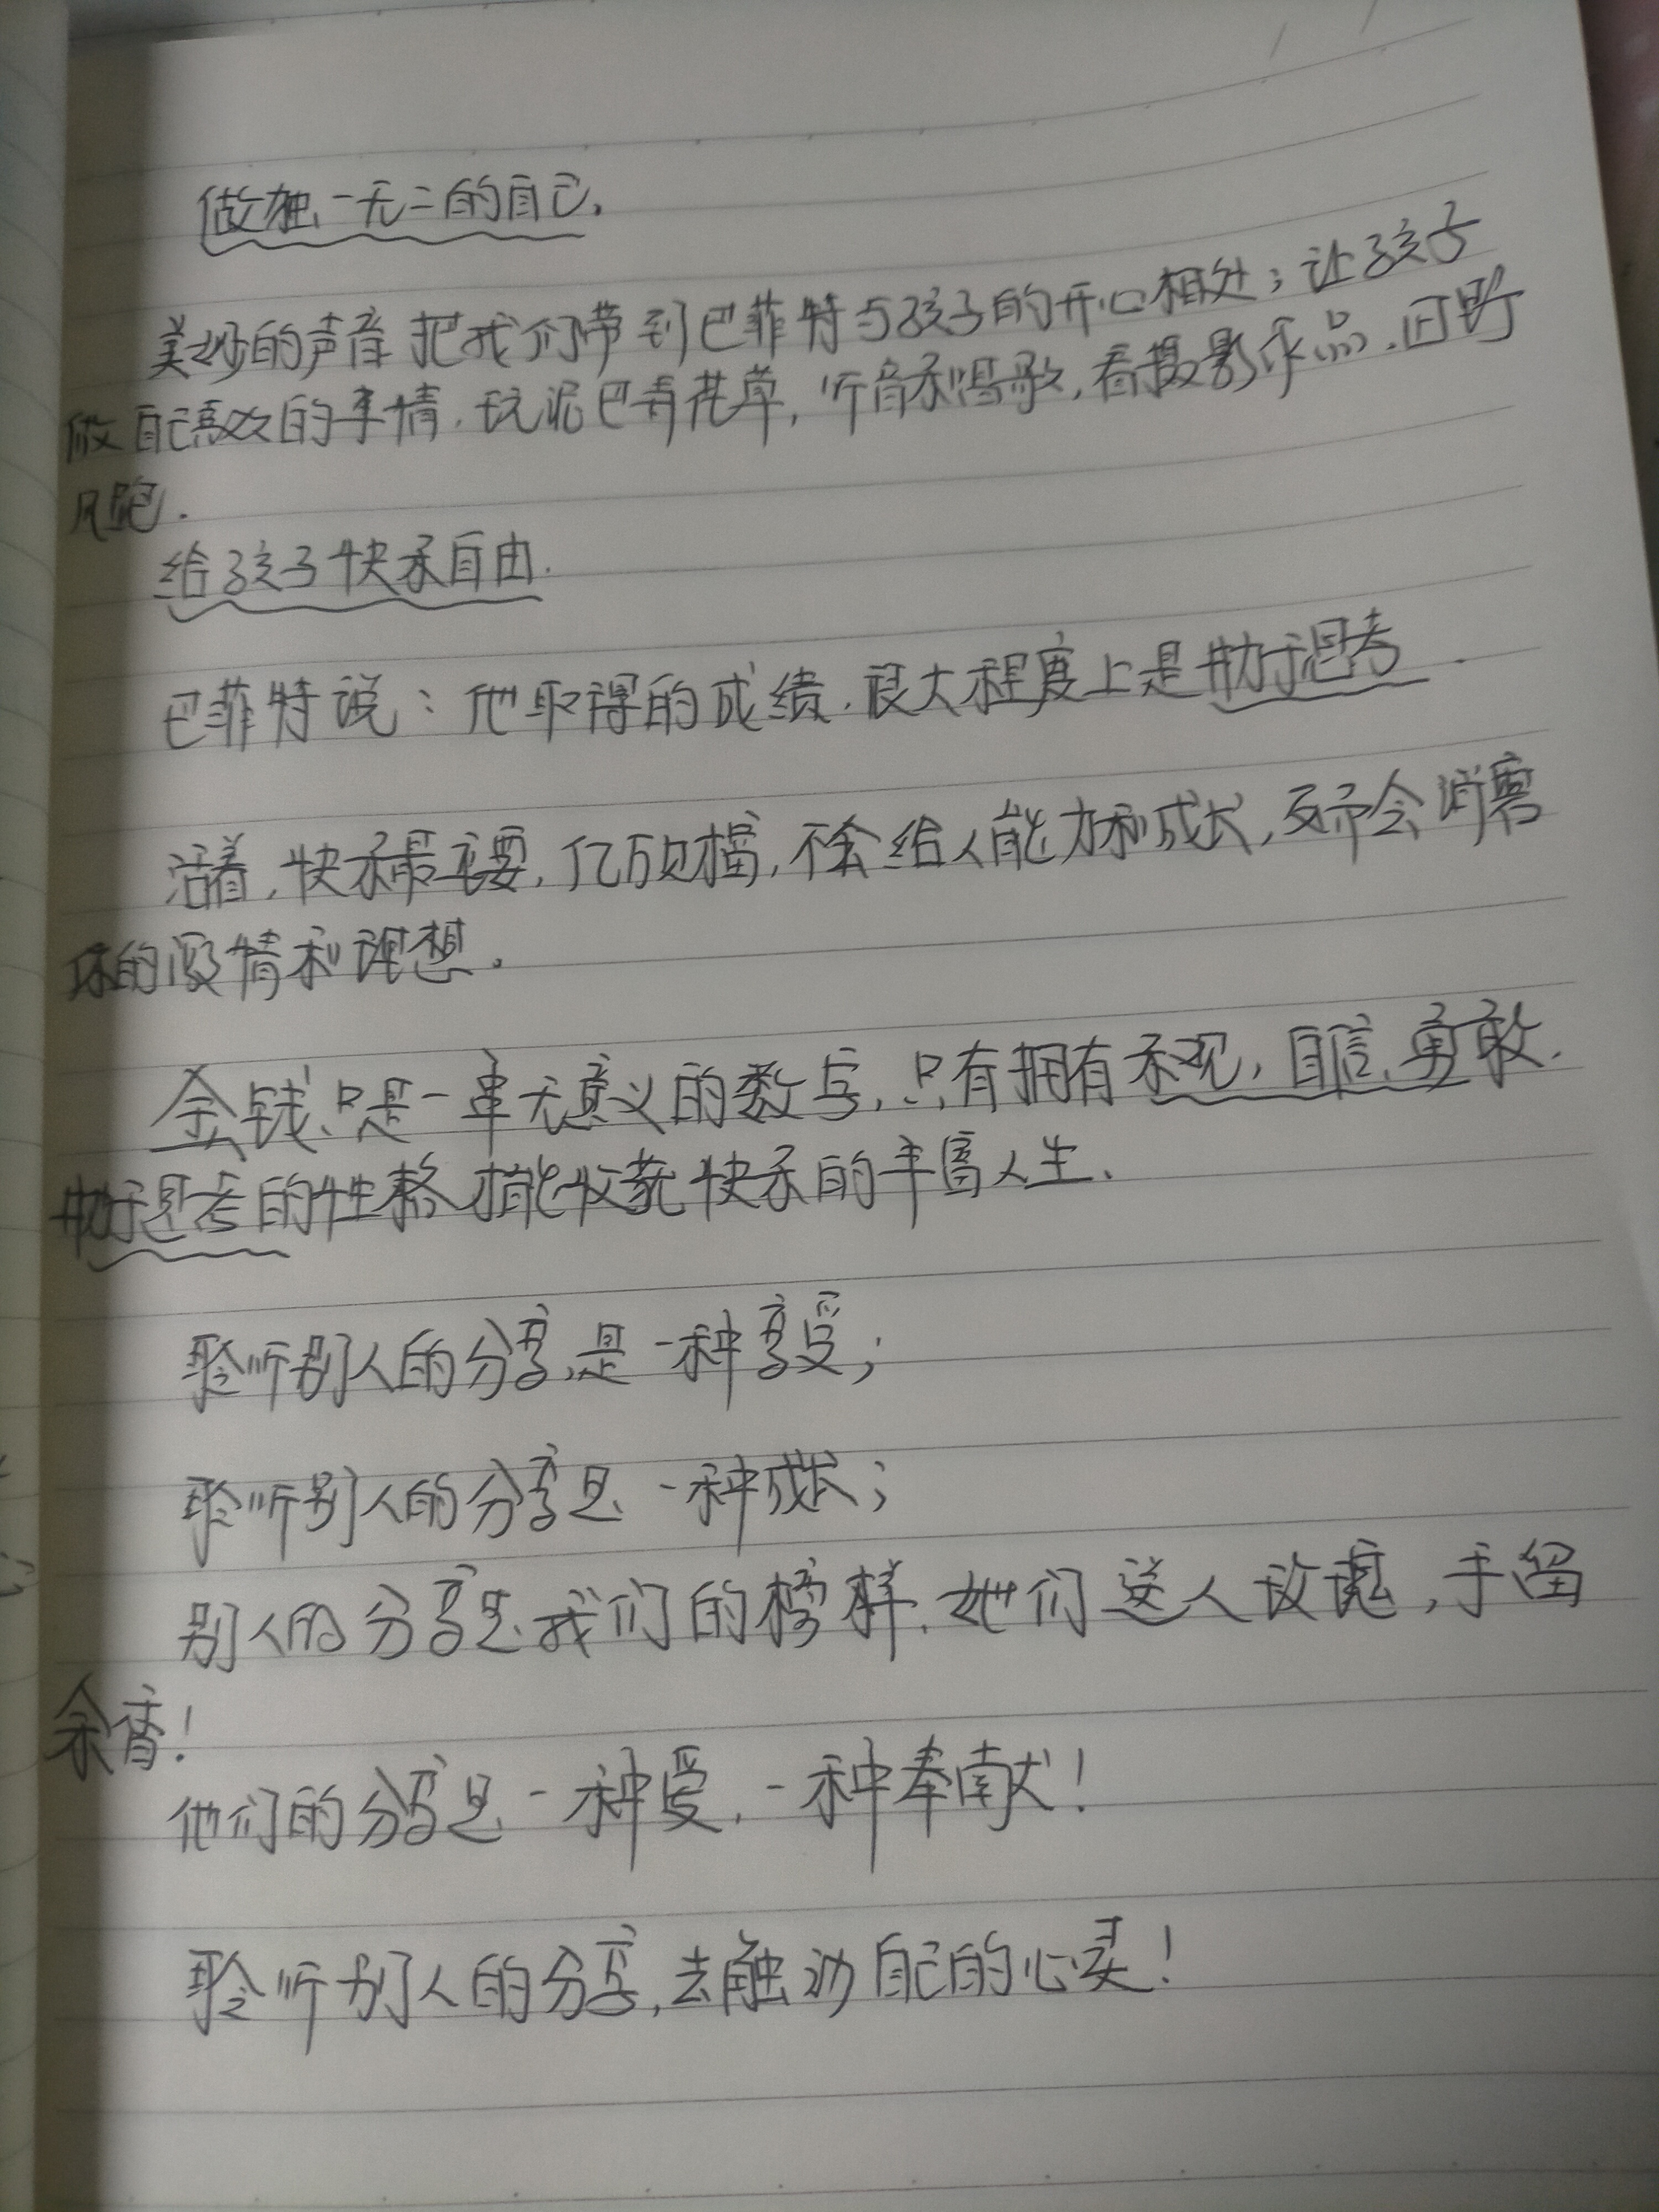 做独一无二的自己.
美妙的声音把我们带到巴菲特与孩子的开心相处；让孩子
做自己喜欢的事情.玩泥巴看花草,听音乐唱歌,看摄影作品.田野
风跑.
给孩子快乐自由.
巴菲特说：他取得的成绩.很大程度上是勤于思考.
活着,快乐最主要,亿万财富,不会给人能力和成长,反而会消磨
你的激情和理想.
金钱只是一串无意义的数字,只有拥有乐观,自信、勇敢.
勤于思考的性格才能收获快乐的丰富人生.
聆听别人的分享是一种享受；
聆听别人的分享是一种成长；
别人的分享是我们的榜样.她们送人玫瑰,手留
余香！
他们的分享是一种爱,一种奉献！
聆听别人的分享,去触动自己的心灵！